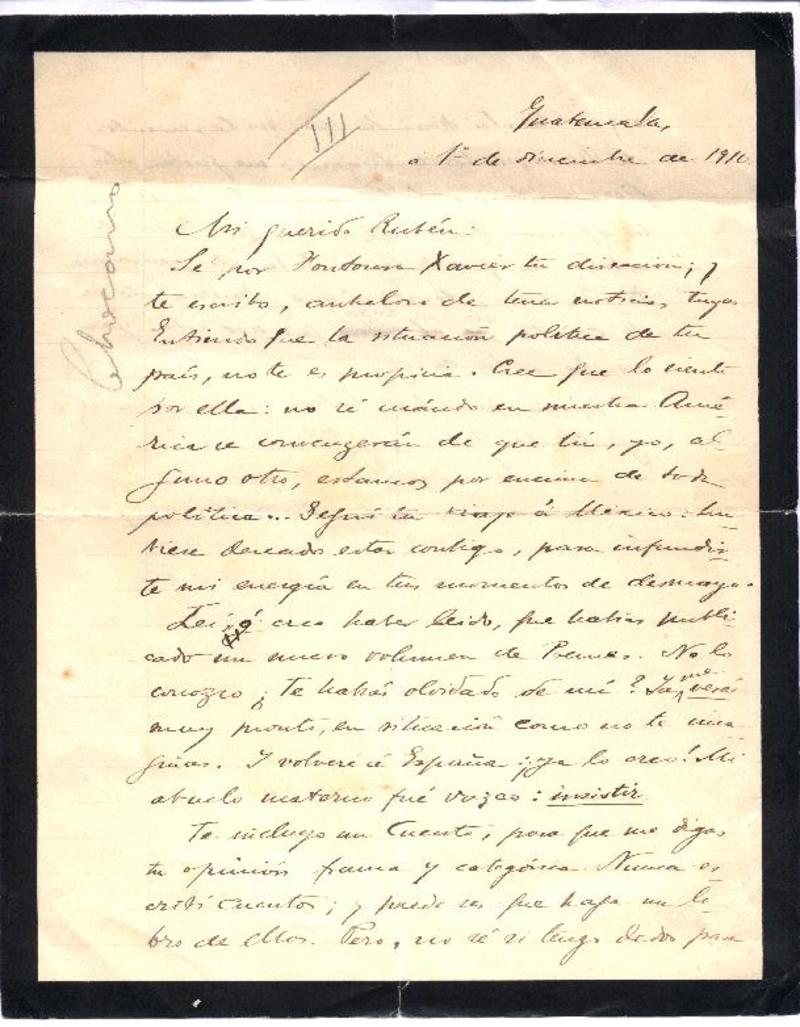 III
Guatemala,
á 1º de diciembre de 1910
Chocano
Mi querido Rubén:
Sé por Fontoura Xavier tu dirección; y
te escribo, anheloso de tener noticias tuyas
Entiendo que la situación política de tu
país, no te es propicia. Cree que lo siento
por ella: no sé cuándo en nuestra Amé-
rica se convencerán de que tú, yo, al-
guno otro, estamos por encima de toda
política... Seguí tu viaje á México: hu-
biese deseado estar contigo, para infundir-
te mi energía en tus momentos de desmayo.
Leí, ó creo haber leido, que habías publi-
cado un nuevo volumen de Poemas. No lo
conozco; te habás olvidado de mí? Ya me verás
muy pronto, en situación como no te ima-
ginas. Y volveré á España: ¡ya lo creo! Mi
abuelo materno fué vazco: insistir
Te incluyo un Cuento, para que me digas
tu opinión franca y categórica. Nunca es-
cribí cuentos; y puede ser que haga un li-
bro de ellos. Pero, no sé si tengo dedos para